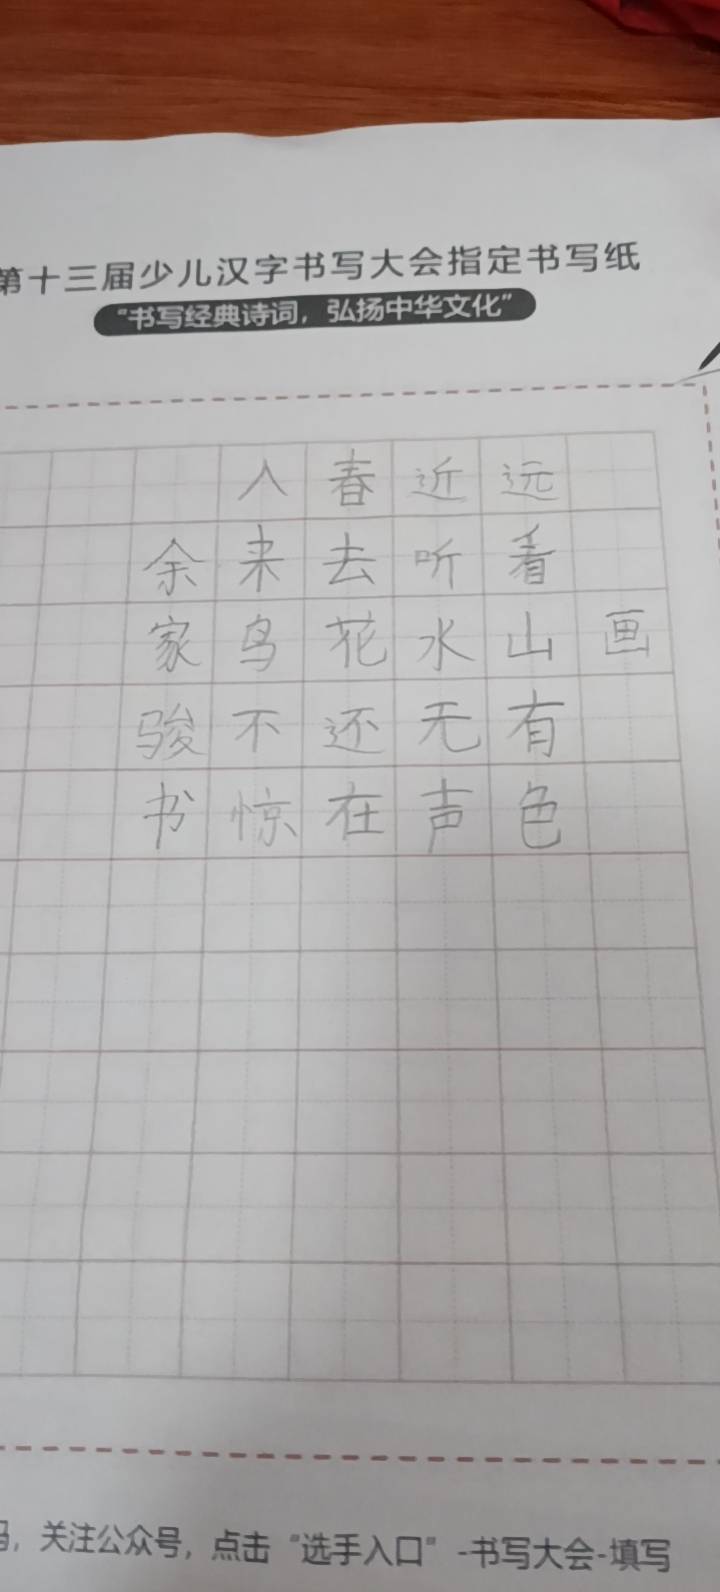 第十三届少儿汉字书写大会指定书写纸
“书写经典诗词，弘扬中华文化”
画
远看山有色
近听水无声
春去花还在
人来鸟不惊
余家骏书
，关注公众号，点击“选手入口”-书写大会-填写